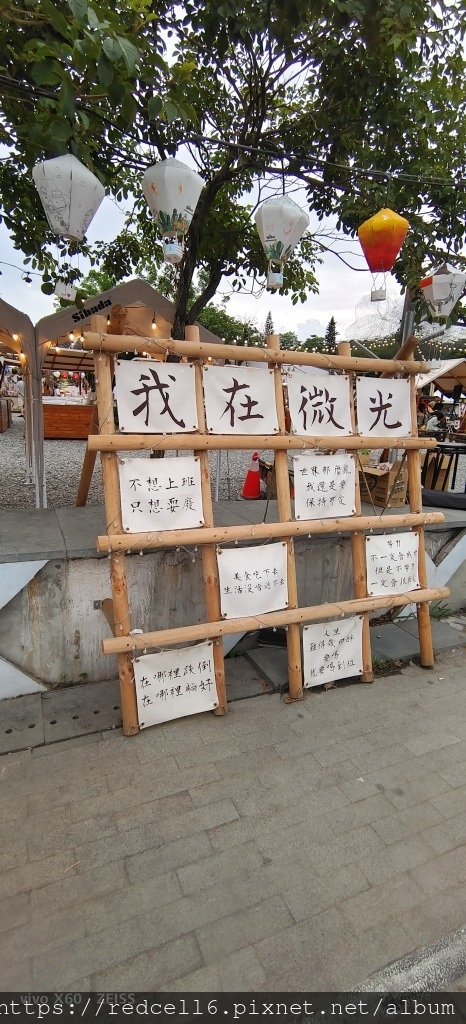 Sibuda
我在微光
不想上班
只想耍廢
世界那麼亂
我還是要
保持不定
美食吃下去
生活沒啥過不去
努力
不一定會成功
但是不努力
一定會很
在哪裡跌倒
在哪裡躺好
人生
難得我
要嗎
就要嗎到位
vivo X60 | ZEISS
https://redcell6.pixnet.net/album